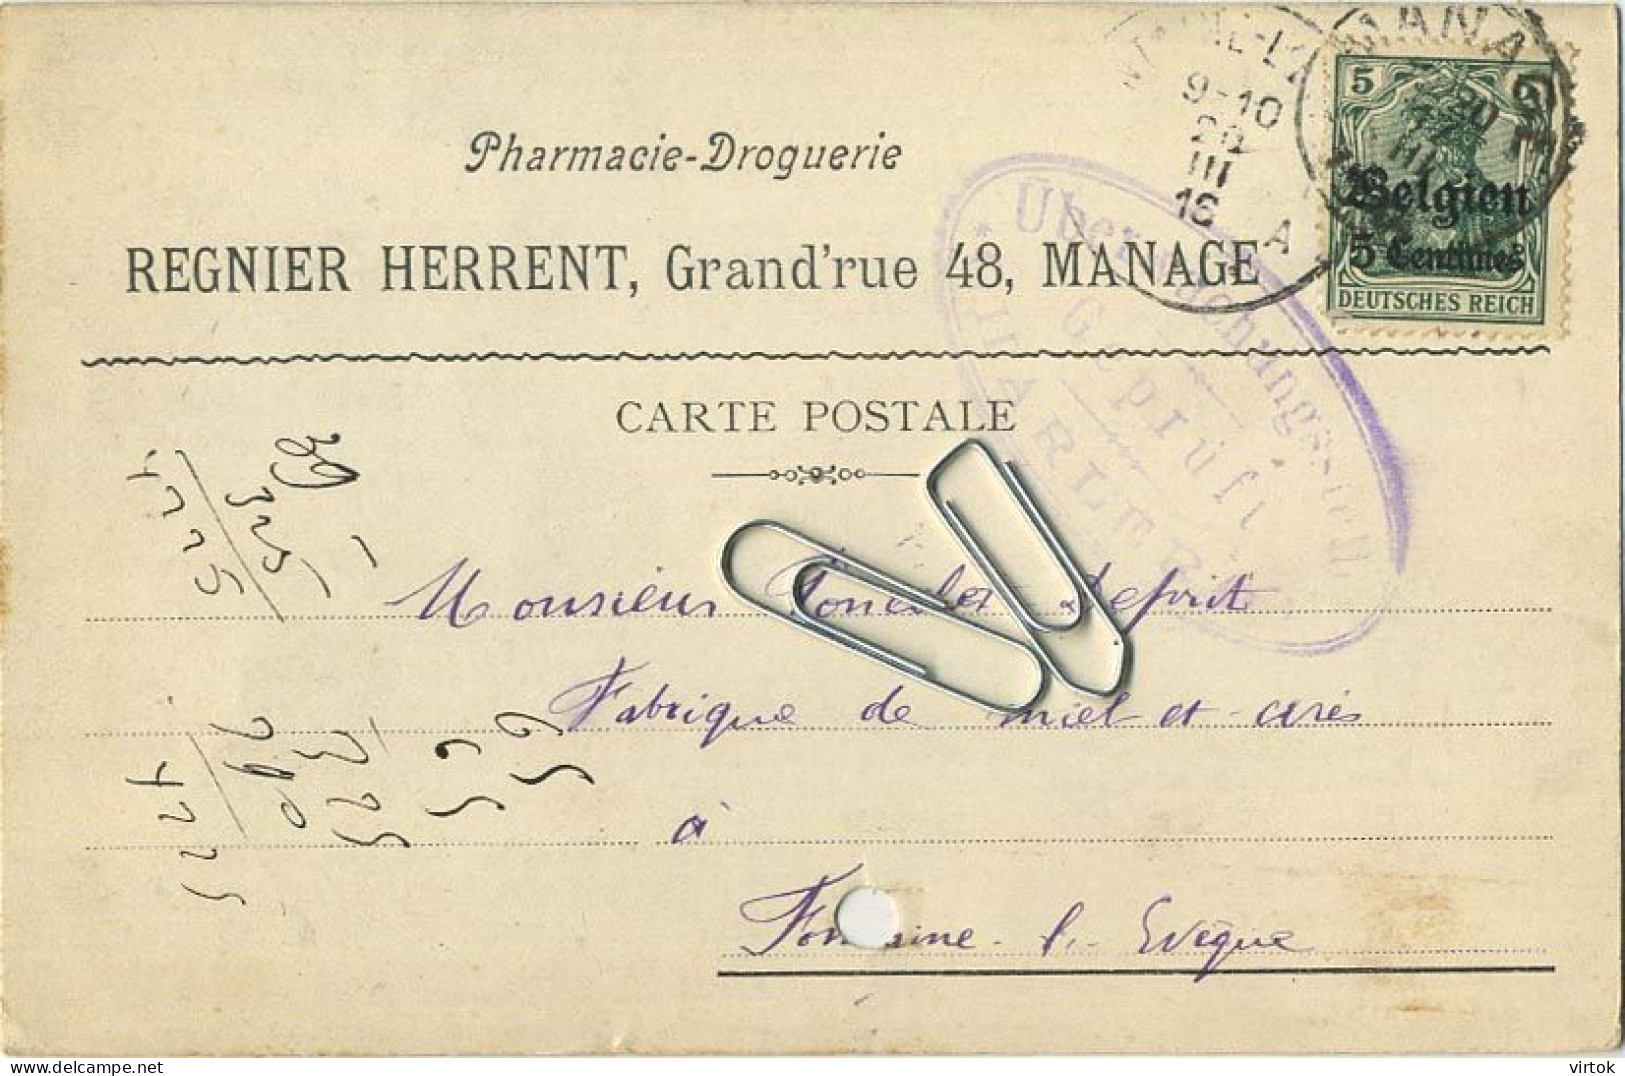 Pharmacie-Droguerie
REGNIER HERRENT, Grand'rue 48, MANAGE
CARTE POSTALE
5 5
Belgien
5 Centimes
DEUTSCHES REICH
MANAGE
9-10
20
III
16
A
Überwachungsstelle
Geprüft
Monsieur
Fabrique de miel et cires
à
Fontaine-l'-Evêque
325
4225
65
65
1325
290
4225
virtok